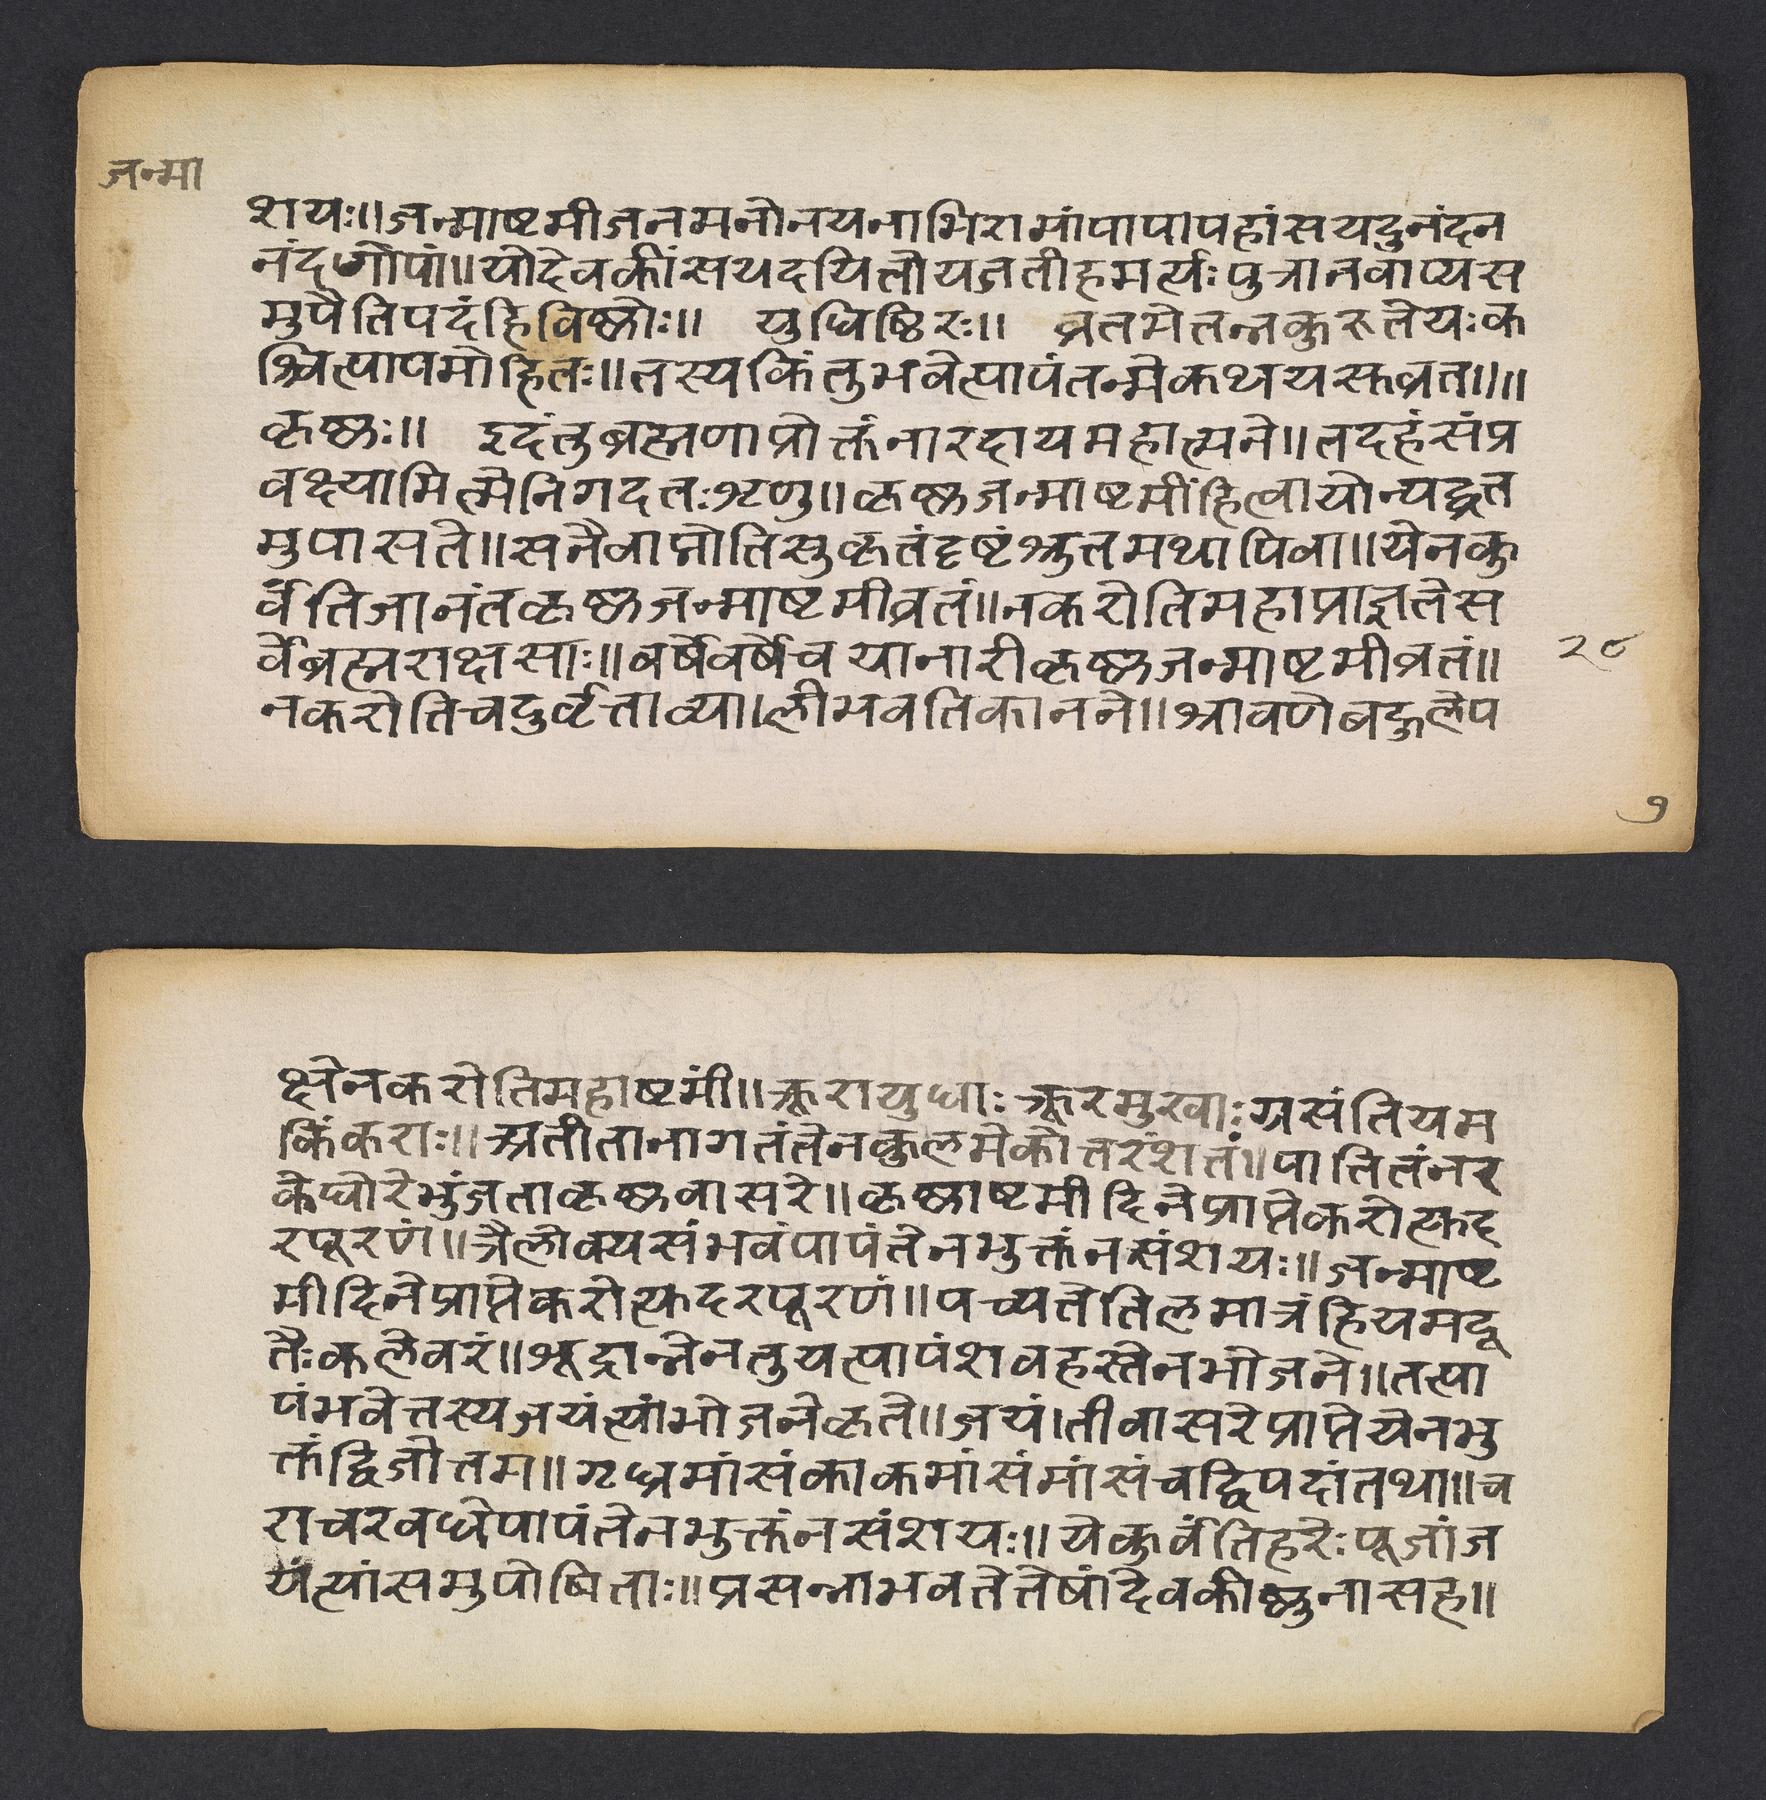 जन्मा
शयः॥जन्माष्टमीजनमनोनयनाभिरामांपापापहांसयदुनंदन
नंदगोपां॥योदेवकींसयदयितोयजतीहमर्त्यःपुत्रानवाप्यस
मुपैतिपदंहिविष्णोः॥ युधिष्ठिरः॥ व्रतमेतन्नकुरुतेयःक
श्चित्पापमोहितः॥तस्यकिंतुभवेत्पापंतन्मेकथयसुव्रत॥॥
कृष्णः॥ इदंतुब्रह्मणाप्रोक्तंनारदायमहात्मने॥तदहंसंप्र
वक्ष्यामित्मैनिगदतःशृणु॥कृष्णजन्माष्टमींहित्वायोन्यद्व्रत
मुपासते॥सनैवाप्नोतिसुकृतंदृष्टंश्रुतमथापिवा॥येनकु
र्वंतिजानंतकृष्णजन्माष्टमीव्रतं॥नकरोतिमहाप्राज्ञतेस
र्वेब्रह्मराक्षसाः॥वर्षेवर्षेचयानारीकृष्णजन्माष्टमीव्रतं॥
२८
नकरोतिचदुर्वृत्ताव्या।लीभवतिकानने॥श्रावणेबहुलेप
७
क्षेनकरोतिमहाष्टमीं॥क्रूरायुधाःक्रूरमुखाःग्रसंतियम
किंकराः॥अतीतानागतंतेनकुलमेकोत्तरंशतं॥पातितंनर
केघोरेभुंजताकृष्णवासरे॥कृष्णाष्टमीदिनेप्राप्तेकरोत्युद
रपूरणं॥त्रैलोक्यसंभवंपापंतेनभुक्तंनसंशयः॥जन्माष्ट
मीदिनेप्राप्तेकरोत्युदरपूरणं॥पच्यतेतिलमात्रंहियमदू
तैःकलेवरं॥शूद्रान्नेनतुयत्पापंशवहस्तेनभोजने॥तत्पा
पंभवेत्तस्यजयंत्यांभोजनेकृते॥जयं।तीवासरेप्राप्तेयेनभु
क्तंद्विजोत्तम॥गृध्रमांसंकाकमांसंमांसंचद्विपदांतथा॥च
राचरवधेपापंतेनभुक्तंनसंशयः॥येकुर्वंतिहरेःपूजांज
यंत्यांसमुपोषिताः॥प्रसन्नाभवतेतेषांदेवकीष्णुनासह॥